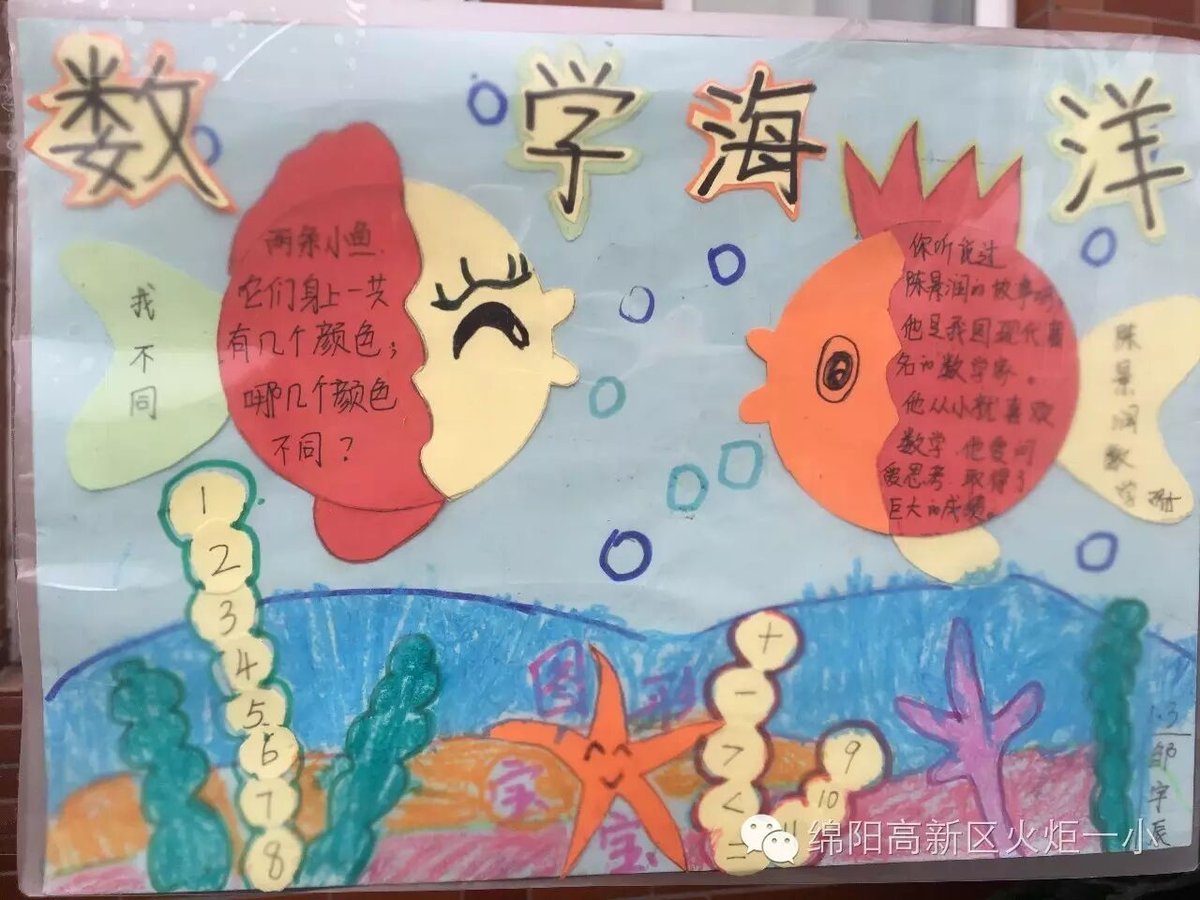 数学海洋
找不同
两条小鱼，
它们身上一共
有几个颜色；
哪几个颜色
不同？
你听说过
陈景润的故事吗
他是我国现代著
名的数学家。
他从小就喜欢
数学 他爱问
爱思考 取得了
巨大的成绩。
陈景润数学
1
2
3
4
5
6
7
8
图形
宝宝
+
－
>
<
=
11
10
9
1.3
邹宇辰
绵阳高新区火炬一小